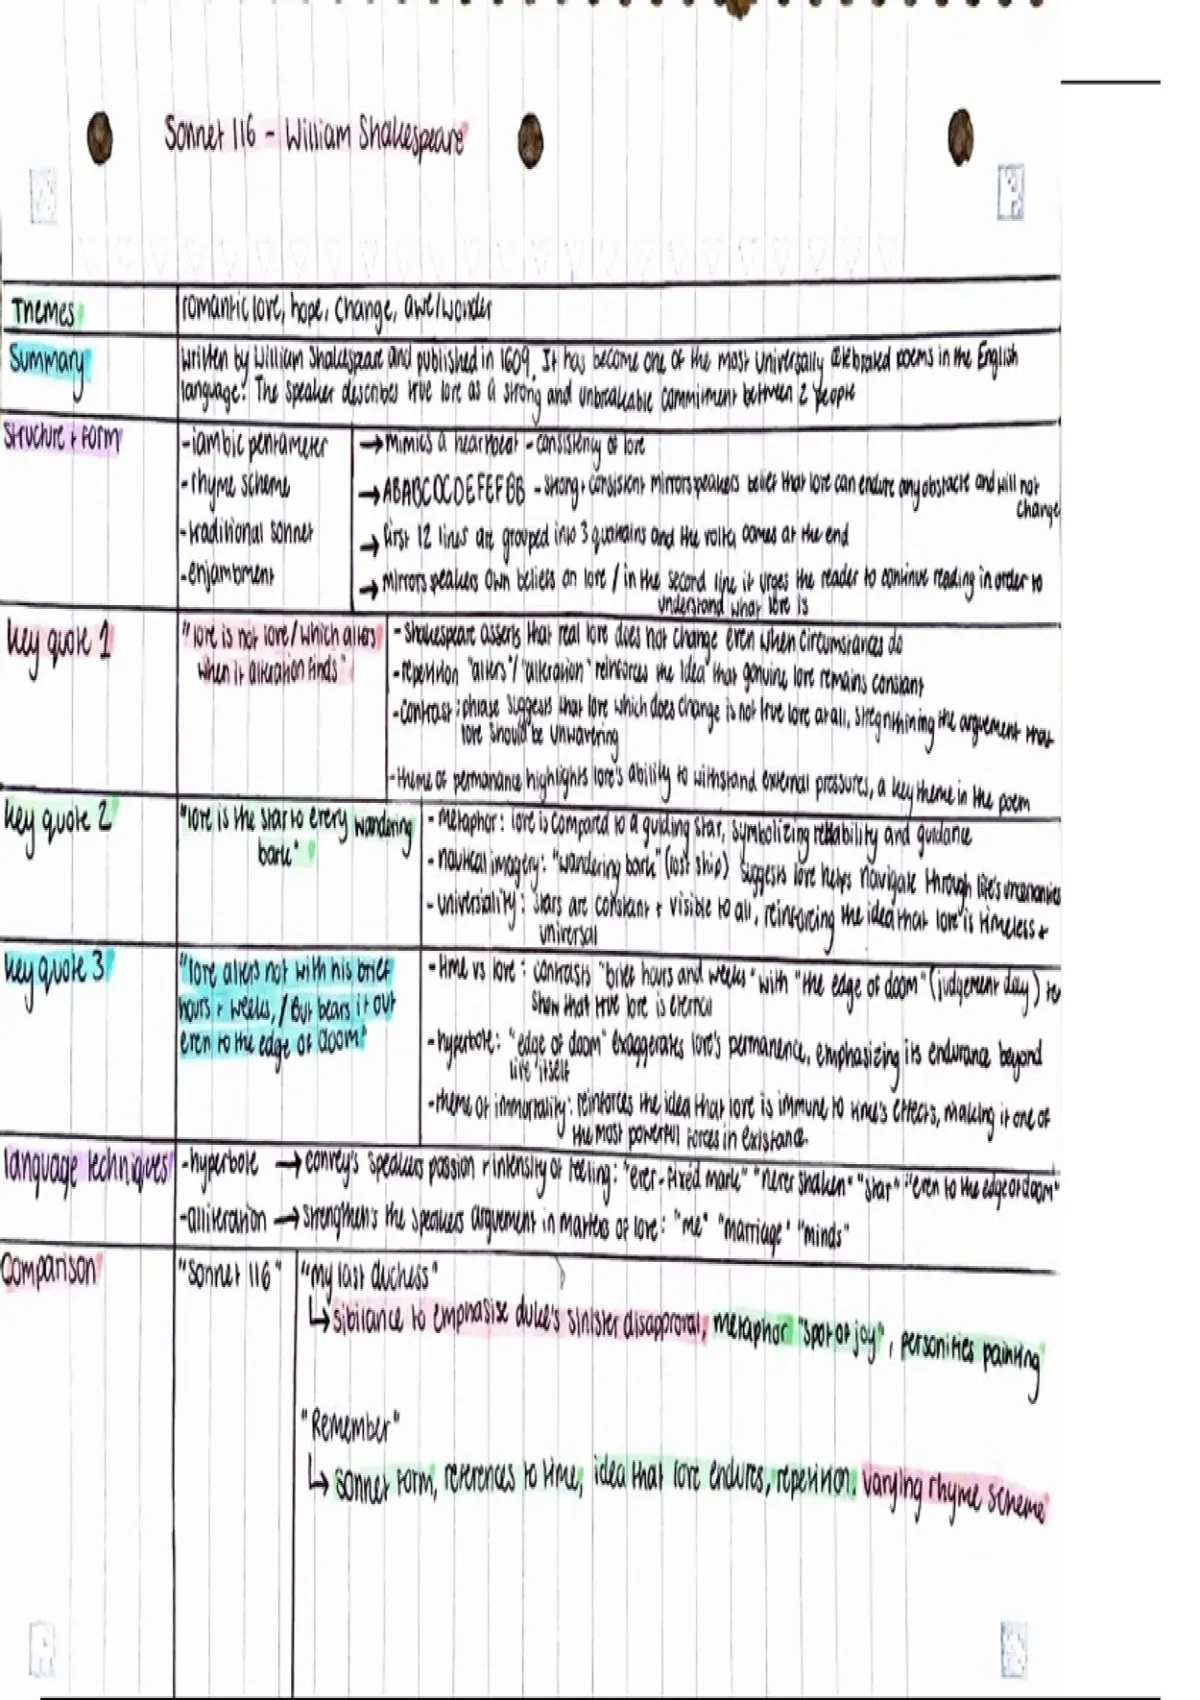 Sonnet 116 - William Shakespeare
Themes
romantic love, hope, change, awe/wonder
Summary
written by William Shakespeare and published in 1609. It has become one of the most universally celebrated poems in the English
language. The speaker describes true love as a strong and unbreakable commitment between 2 people
Structure + Form
-iambic pentameter
→ mimics a heartbeat - consistency of love
-rhyme scheme
→ ABABCDCDEFEFGG - strong + consistent mirrors speakers belief that love can endure any obstacle and will not
change
-traditional sonnet
→ first 12 lines are grouped into 3 quatrains and the volta comes at the end
-enjambment
→ mirrors speakers own beliefs on love / in the second line it urges the reader to continue reading in order to
understand what love is
key quote 1
"love is not love / which alters
when it alteration finds"
- Shakespeare asserts that real love does not change even when circumstances do
-repetition "alters" / "alteration" reinforces the idea that genuine love remains constant
-contrast : phrase suggests that love which does change is not true love at all, stregnthining the arguement that
love should be unwavering
-theme of permanance highlights love's ability to withstand external pressures, a key theme in the poem
key quote 2
"love is the star to every wandering
bark"
- metaphor : love is compared to a guiding star, symbolizing reliability and guidance
- nautical imagery: "wandering bark" (lost ship) suggests love helps navigate through life's uncertainties
- universiality : stars are constant + visible to all, reinforcing the idea that love is timeless +
universal
key quote 3
"love alters not with his brief
hours + weeks, / But bears it out
even to the edge of doom"
-time vs love : contrasts "brief hours and weeks" with "the edge of doom" (judgement day) to
show that true love is eternal
-hyperbole: "edge of doom" exaggerates love's permanence, emphasizing its endurance beyond
life itself
-theme of immortality : reinforces the idea that love is immune to time's effects, making it one of
the most powerful forces in existance.
language techniques
-hyperbole → convey's speakers passion + intensity of feeling: "ever-fixed mark" "never shaken" "star" "even to the edge of doom"
-alliteration → strengthen's the speakers arguement in matters of love : "me" "marriage" "minds"
Comparison
"Sonnet 116"
"my last duchess"
↳ sibilance to emphasise duke's sinister disapproval, metaphor "spot of joy", personifies painting
"Remember"
↳ sonnet form, references to time, idea that love endures, repetition. varying rhyme scheme